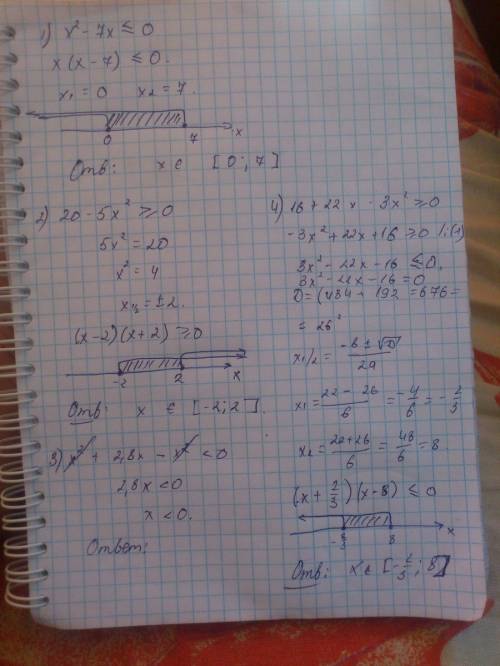 1) x² - 7x ≤ 0
x(x-7) ≤ 0.
x₁ = 0 x₂ = 7.
0 7 x
Отв: x ∈ [0; 7]
2) 20 - 5x² ≥ 0
5x² = 20
x² = 4
x₁,₂ = ±2.
(x-2)(x+2) ≥ 0
-2 2 x
Отв: x ∈ [-2; 2].
3) x² + 2,8x - x² < 0
2,8x < 0
x < 0.
Ответ:
4) 16 + 22x - 3x² ≥ 0
-3x² + 22x + 16 ≥ 0 /:(-1)
3x² - 22x - 16 ≤ 0.
3x² - 22x - 16 = 0
D = (484 + 192 = 676 =
= 26²
x₁/₂ = -b ± √D / 2a
x₁ = 22 - 26 / 6 = -4/6 = -2/3
x₂ = 22+26 / 6 = 48/6 = 8.
(x + 2/3)(x-8) ≤ 0
-2/3 8 x
Отв: x ∈ [-2/3; 8]